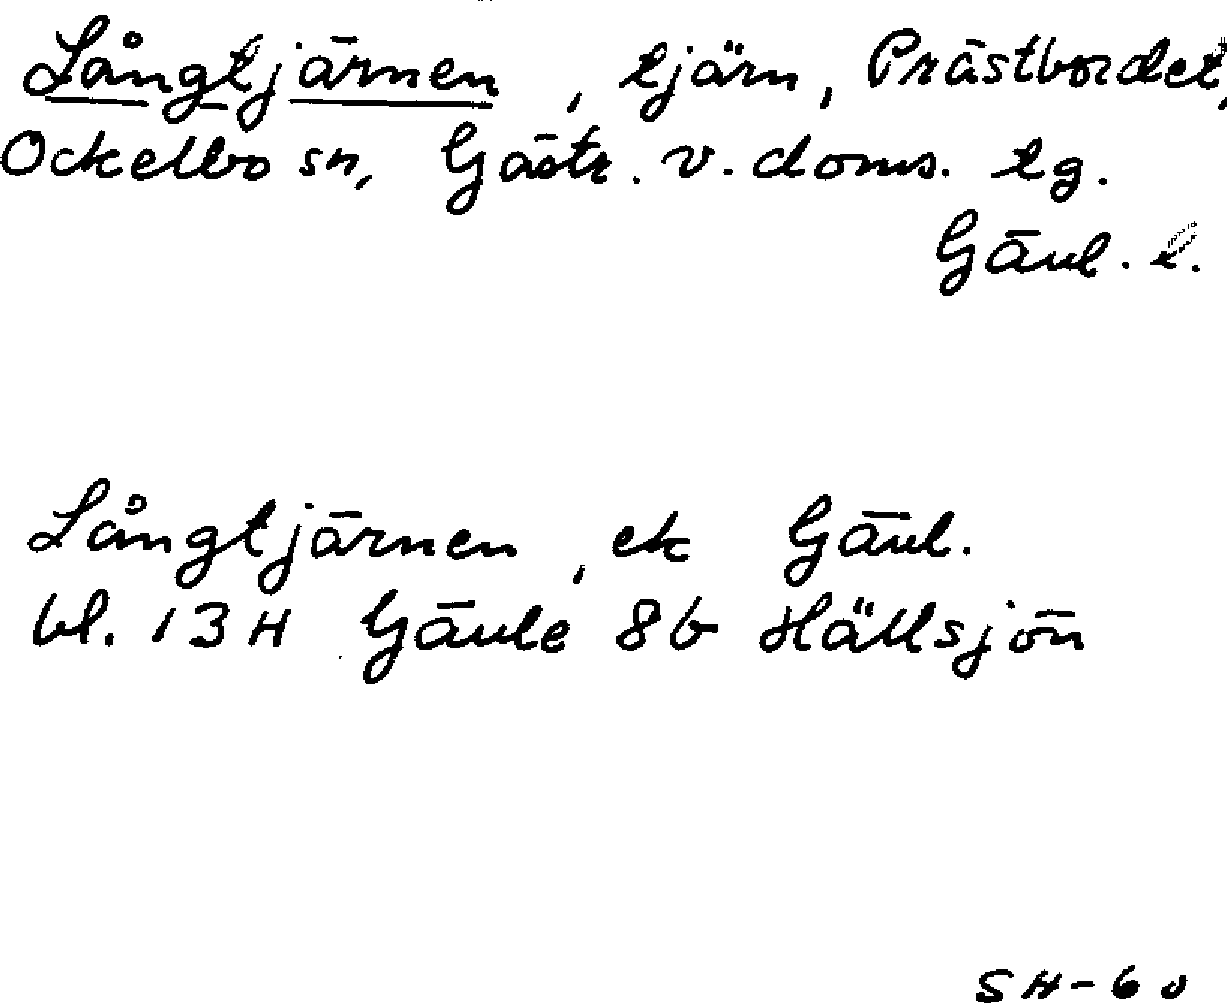 Långtjärnen, tjärn, Prästbordet,
Ockelbo sn, Gästr. v. doms. tg.
Gävl. l.
Långtjärnen, ek Gävl.
bl. 13H Gävle 8b Hällsjön
SH-60